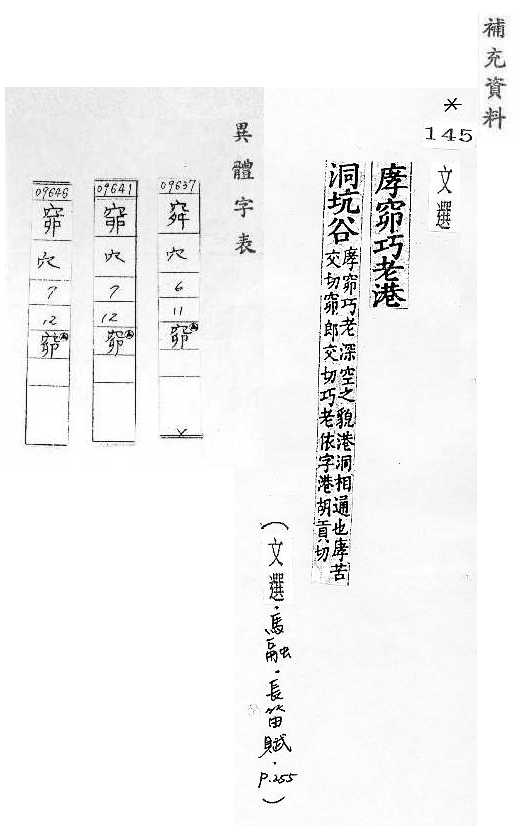 補充資料
*
145
文選
庨窌巧老港
洞坑谷
庨窌巧老深空之貌港洞相通也庨苦
交切窌郎交切巧老依字港胡貢切
(文選·馬融·長笛賦·P.255)
異體字表
09637
穴
6
11
窌
09641
穴
7
12
窌
09646
穴
7
12
窌